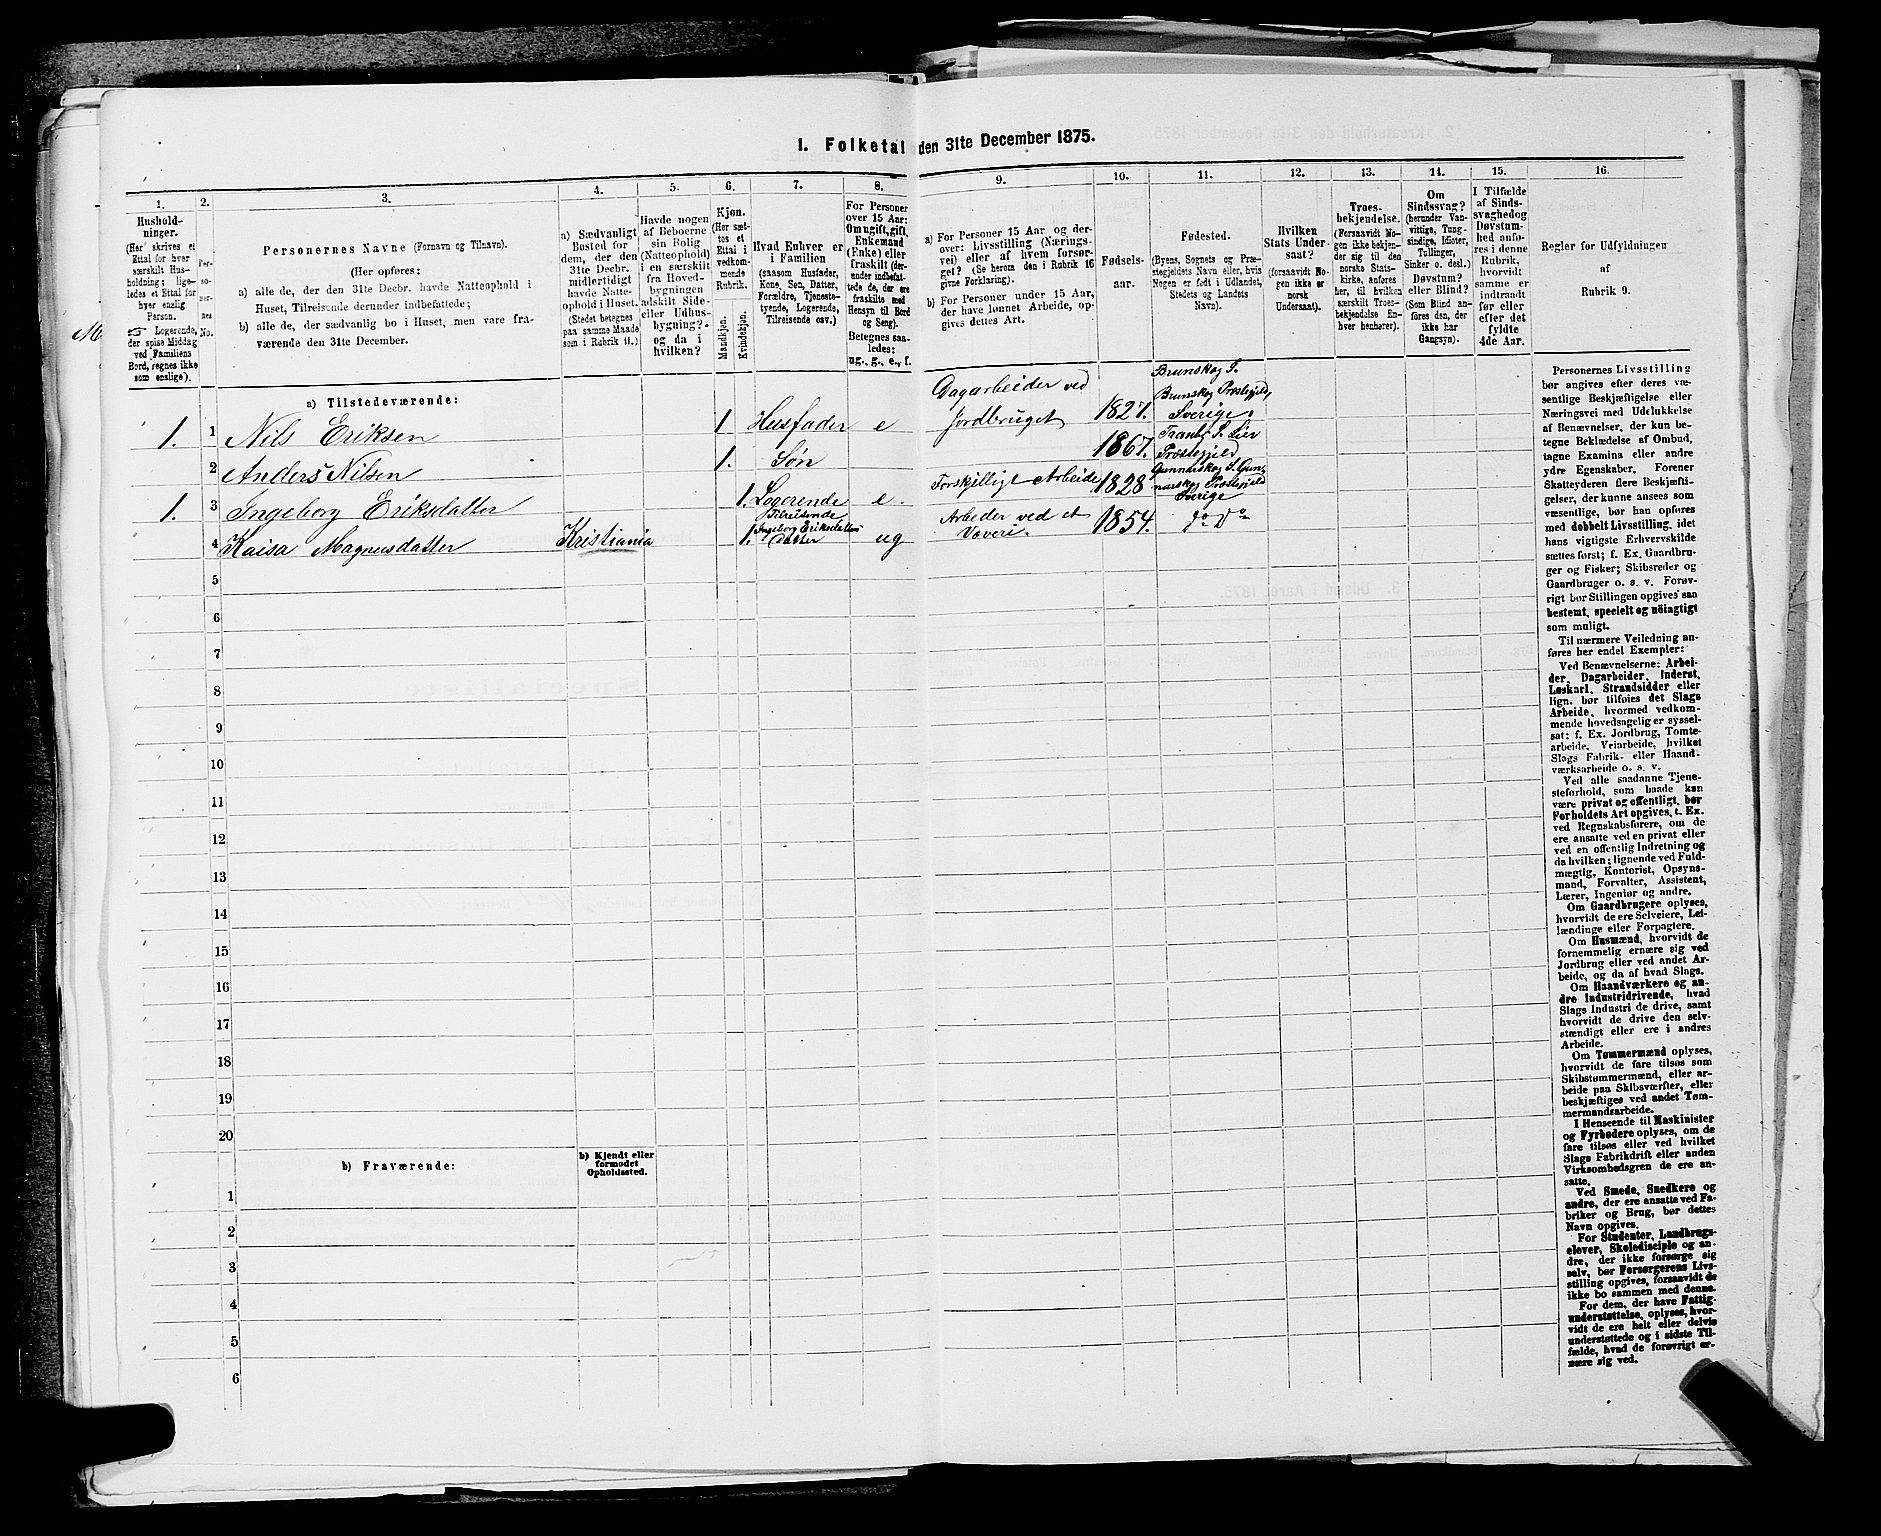 I. Folketal den 31te December 1875.
1.
2.
3.
4.
5.
6.
7.
8.
9.
10.
11.
12.
13.
14.
15.
16.
Hushold-
ninger.
(Her skrives et
Ettal for hver
særskilt Hus-
holdning; lige-
ledes et Ettal for
hver enslig
Person.
☞ Logerende,
der spise Middag
ved Familiens
Bord, regnes ikke
som enslige).
Per-
so-
ner-
nes
No.
Personernes Navne (Fornavn og Tilnavn).
(Her opføres:
a) alle de, der den 31te Decbr. havde Natteophold i
Huset, Tilreisende derunder indbefattede;
b) alle de, der sædvanlig bo i Huset, men vare fra-
værende den 31te December.
a) Sædvanligt
Bosted for
dem, der den
31te Decbr.
midlertidigt
havde Natte-
ophold i Huset.
(Stedet betegnes
paa samme Maade
som i Rubrik 11.)
Havde nogen
af Beboerne
sin Bolig
(Natteophold)
i en særskilt
fra Hoved-
bygningen
adskilt Side-
eller Udhus-
bygning?
og da i
hvilken?
Kjøn.
(Her sæt-
tes et
Ettal i
vedkom-
mende
Rubrik.
Mandkjøn.
Kvindekjøn.
Hvad Enhver er
i Familien
(saasom Husfader,
Kone, Søn, Datter,
Forældre, Tjeneste-
tyende, Logerende,
Tilreisende osv.)
For Personer
over 15 Aar:
Om ugift, gift,
Enkemand
(Enke) eller
fraskilt (der-
under indbefat-
tede de, der ere
fraskilte med
Hensyn til Bord
og Seng).
Betegnes saa-
ledes:
ug., g., e., f.
a) For Personer 15 Aar og der-
over: Livsstilling (Nærings-
vei) eller af hvem forsør-
get? (Se herom den i Rubrik 16
givne Forklaring).
b) For Personer under 15 Aar,
der have lønnet Arbeide, op-
gives dettes Art.
Fødsels-
aar.
Fødested.
(Byens, Sognets og Præ-
stegjeldets Navn eller, hvis
Nogen er født i Udlandet,
Stedets og Landets
Navn).
Hvilken
Stats Under-
saat?
(forsaavidt No-
gen ikke er
norsk
Undersaat).
Troes-
bekjendelse.
(Forsaavidt No-
gen ikke bekjen-
der sig til den
norske Stats-
kirke, anføres
her, til hvilken
særskilt Troes-
bekjendelse En-
hver henhører).
Om
Sindssvag?
(herunder Van-
vittige, Tung-
sindige, Idioter,
Tullinger,
Sinker o. desl.)
Døvstum?
eller Blind?
(Som Blind an-
føres den, der
ikke har
Gangsyn).
I Tilfælde
af Sinds-
svaghed og
Døvstum-
hed anfø-
res i denne
Rubrik,
hvorvidt
samme er
indtraadt
før eller
efter det
fyldte
4de Aar.
Regler for Udfyldningen
af
Rubrik 9.
a) Tilstedeværende:
1. 1 Nils Eriksen 1 Husfader e Dagarbeider ved Jordbruget 1827. Brunskog S. Brunskog Præstegjeld, Sverige.
2 Anders Nilsen 1. Søn 1867. Tranby S. Lier Præstegjeld
1. 3 Ingeborg Eriksdatter 1. Logerende e. Forskjelligt Arbeide 1828 Gunnarskog S. Gunnarskog Præstegjeld Sverige
4 Kaisa Magnusdatter Kristiania 1. Tilreisende Ingeborg Eriksdatters Datter ug Arbeder ved et Væveri. 1854. do Do
5
6
7
8
9
10
11
12
13
14
15
16
17
18
19
20
b) Fraværende:
b) Kjendt eller
formodet
Opholdssted.
1
2
3
4
5
6
Personernes Livsstilling
bør angives efter deres væ-
sentlige Beskjæftigelse eller
Næringsvei med Udelukkelse
af Benævnelser, der kun be-
tegne Beklædelse af Ombud,
tagne Examina eller andre
ydre Egenskaber. Forener
Skatteyderen flere Beskjæfti-
gelser, der kunne ansees som
væsentlige, bør han opføres
med dobbelt Livsstilling, idet
hans vigtigste Erhvervskilde
sættes først; f. Ex. Gaardbru-
ger og Fisker; Skibsreder og
Gaardbruger o. s. v. Forøv-
rigt bør Stillingen opgives saa
bestemt, specielt og nøiagtigt
som muligt.
Til nærmere Veiledning an-
føres her endel Exempler:
Ved Benævnelserne: Arbei-
der, Dagarbeider, Inderst,
Løskarl, Strandsidder eller
lign. bør tilføies det Slags
Arbeide, hvormed vedkom-
mende hovedsagelig er syssel-
sat: f. Ex. Jordbrug, Tomte-
arbeide, Veiarbeide, hvilket
Slags Fabrik- eller Haand-
værksarbeide o. s. v.
Ved alle saadanne Tjene-
steforhold, som baade kan
være privat og offentligt, bør
Forholdets Art opgives, t. Ex.
ved Regnskabsførere, om de
ere ansatte ved en privat eller
ved en offentlig Indretning og
da hvilken; lignende ved Fuld-
mægtig, Kontorist, Opsyns-
mand, Forvalter, Assistent,
Lærer, Ingeniør og andre.
Om Gaardbrugere oplyses,
hvorvidt de ere Selveiere, Lei-
lændinge eller Forpagtere.
Om Husmænd, hvorvidt de
fornemmelig ernære sig ved
Jordbrug eller ved andet Ar-
beide, og da af hvad Slags.
Om Haandværkere og an-
dre Industridrivende, hvad
Slags Industri de drive, samt
hvorvidt de drive den selv-
stændigt eller ere i andres
Arbeide.
Om Tømmermænd oplyses,
hvorvidt de fare tilsøs som
Skibstømmermænd, eller ar-
beide paa Skibsværfter, eller
beskjæftiges ved andet Tøm-
mermandsarbeide.
I Henseende til Maskinister
og Fyrbødere oplyses, om de
fare tilsøs eller ved hvilket
Slags Fabrikdrift eller anden
Virksomhedsgren de ere an-
satte.
Ved Smede, Snedkere og
andre, der ere ansatte ved Fa-
briker og Brug, bør dettes
Navn opgives.
For Studenter, Landbrugs-
elever, Skoledisciple og an-
dre, der ikke forsørge sig
selv, bør Forsørgerens Livs-
stilling opgives, forsaavidt de
ikke bo sammen med denne.
For dem, der have Fattig-
understøttelse, oplyses, hvor-
vidt de ere helt eller delvis
understøttede og i sidste Til-
fælde, hvad de forøvrigt er-
nære sig ved.